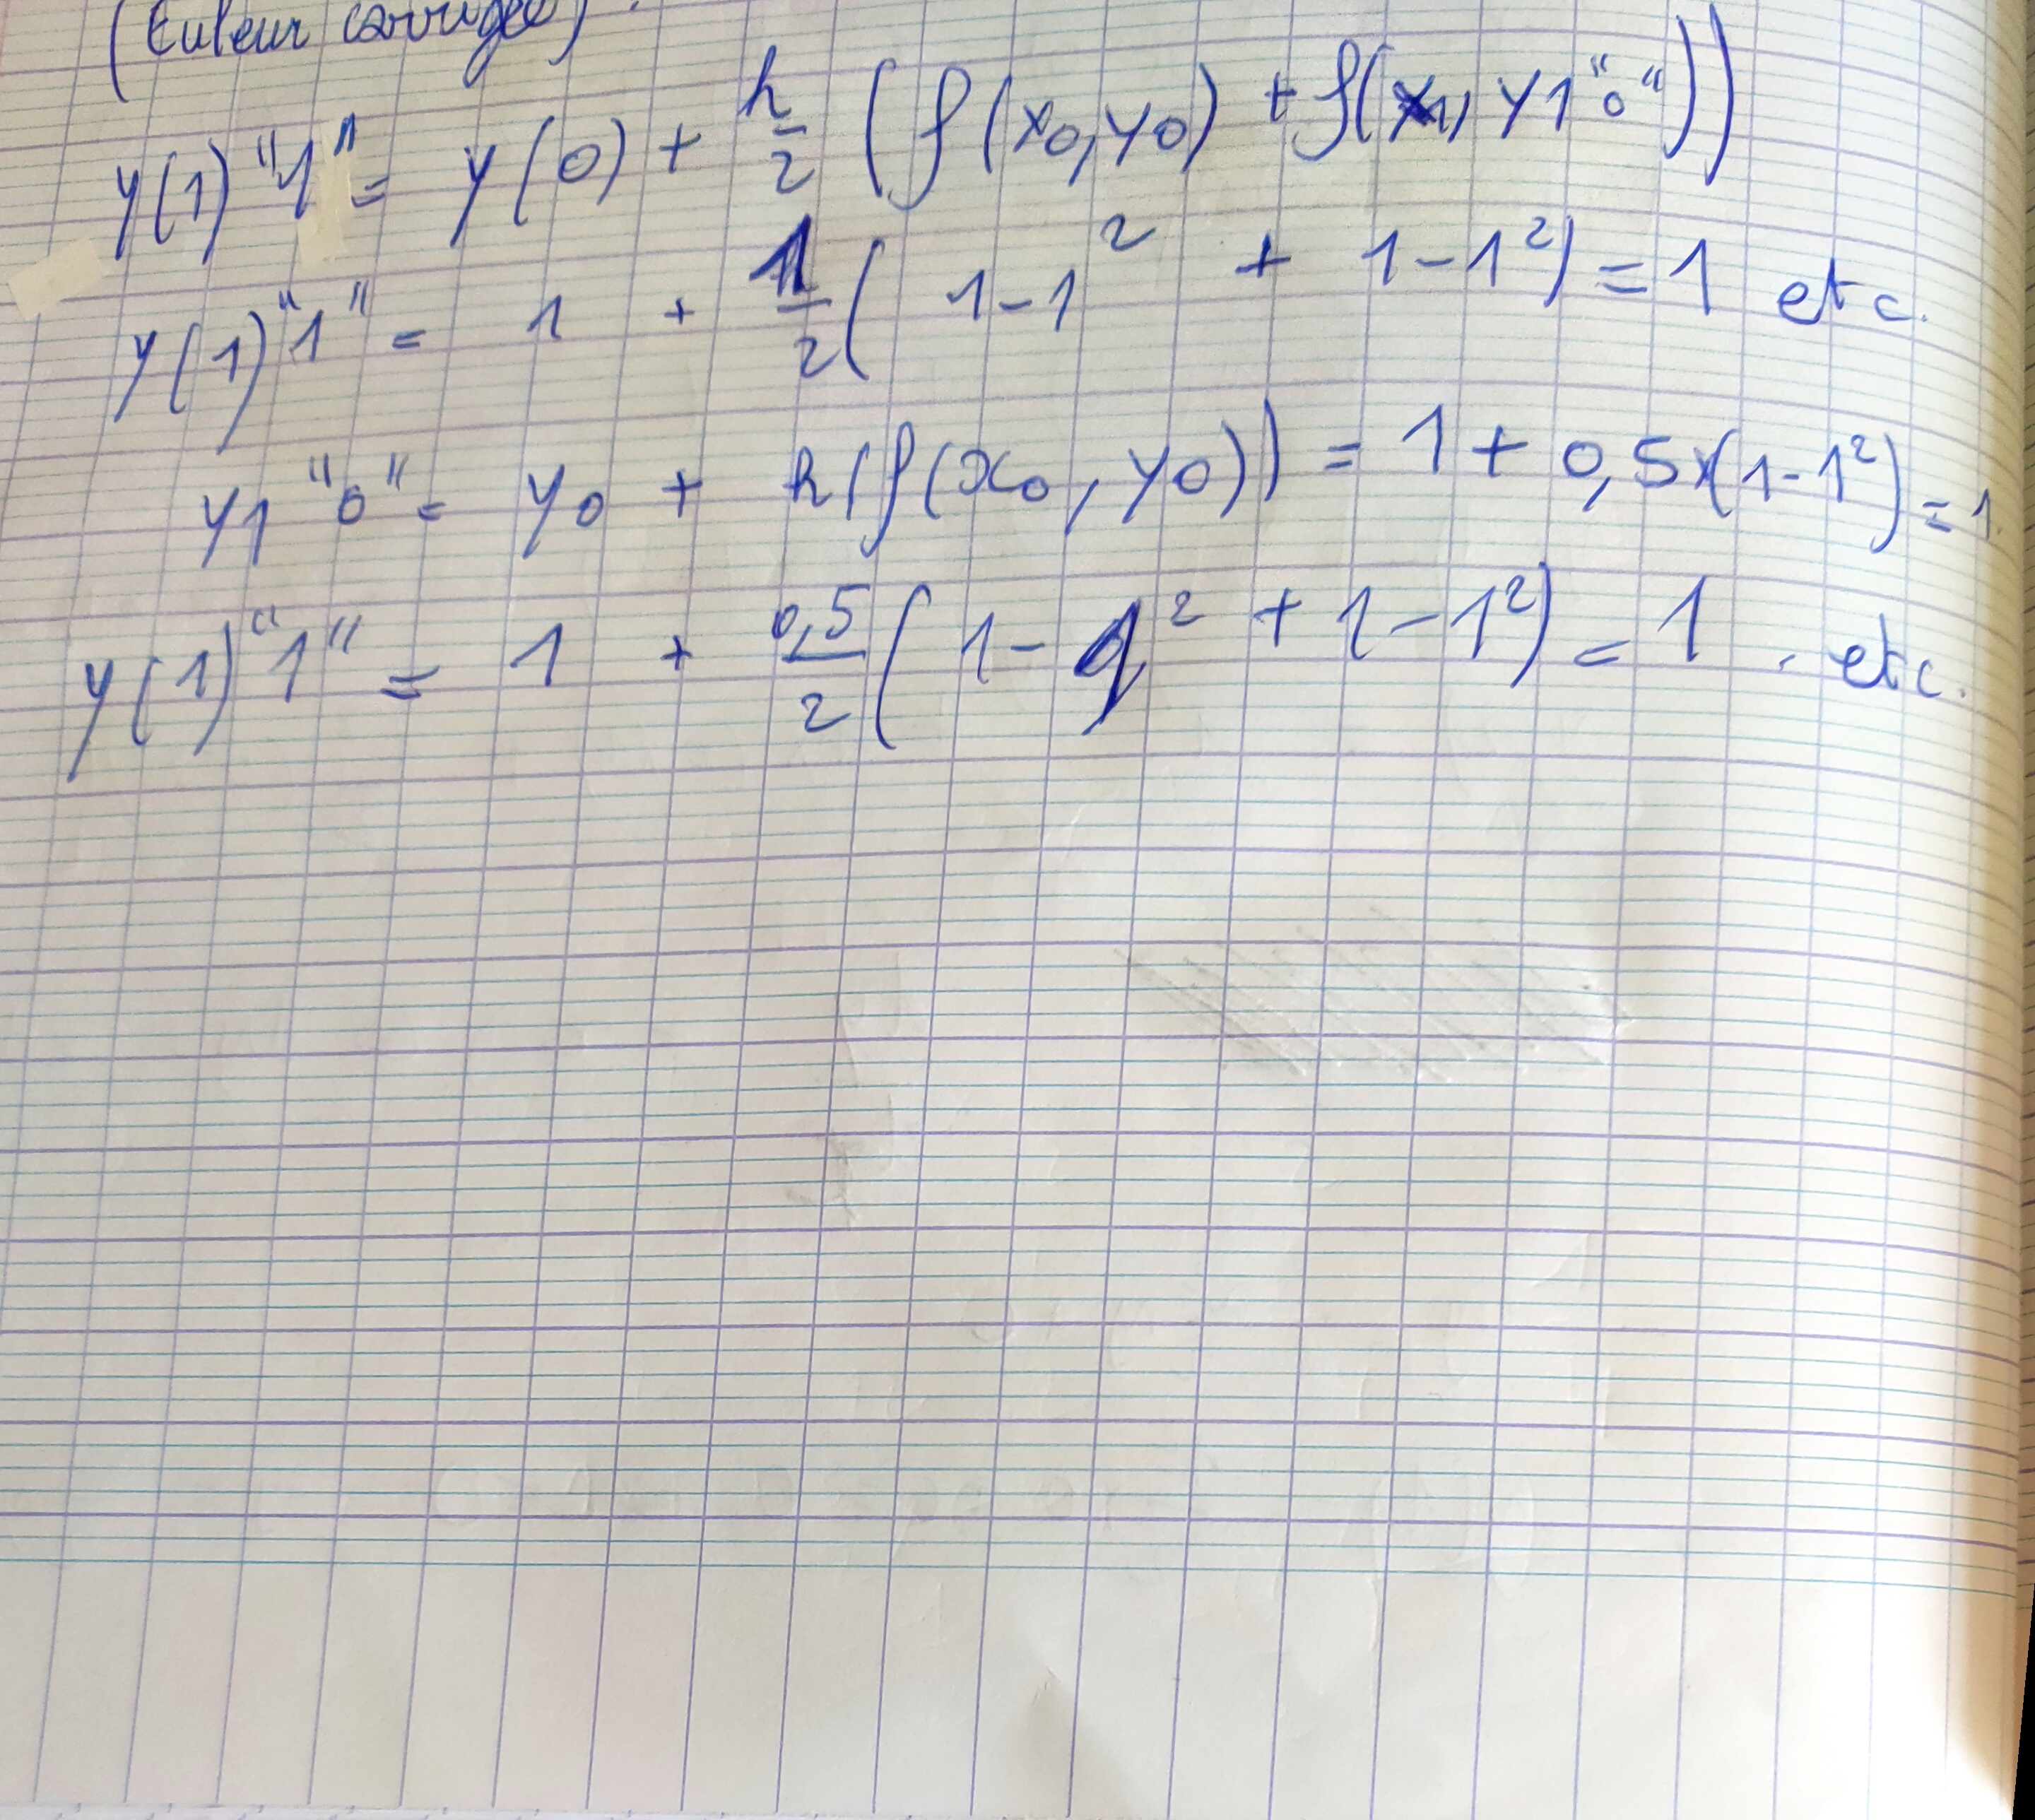 (Euleur corrigée)
y(1)"1" = y(0) + h/2 (f(x0,y0) + f(x1, y1"0"))
y(1)"1" = 1 + 1/2 (1-1² + 1-1²) = 1 etc.
y1"0" = y0 + h(f(x0, y0)) = 1 + 0,5x(1-1²) = 1.
y(1)"1" = 1 + 0,5/2 (1-1² + 1-1²) = 1 . etc.